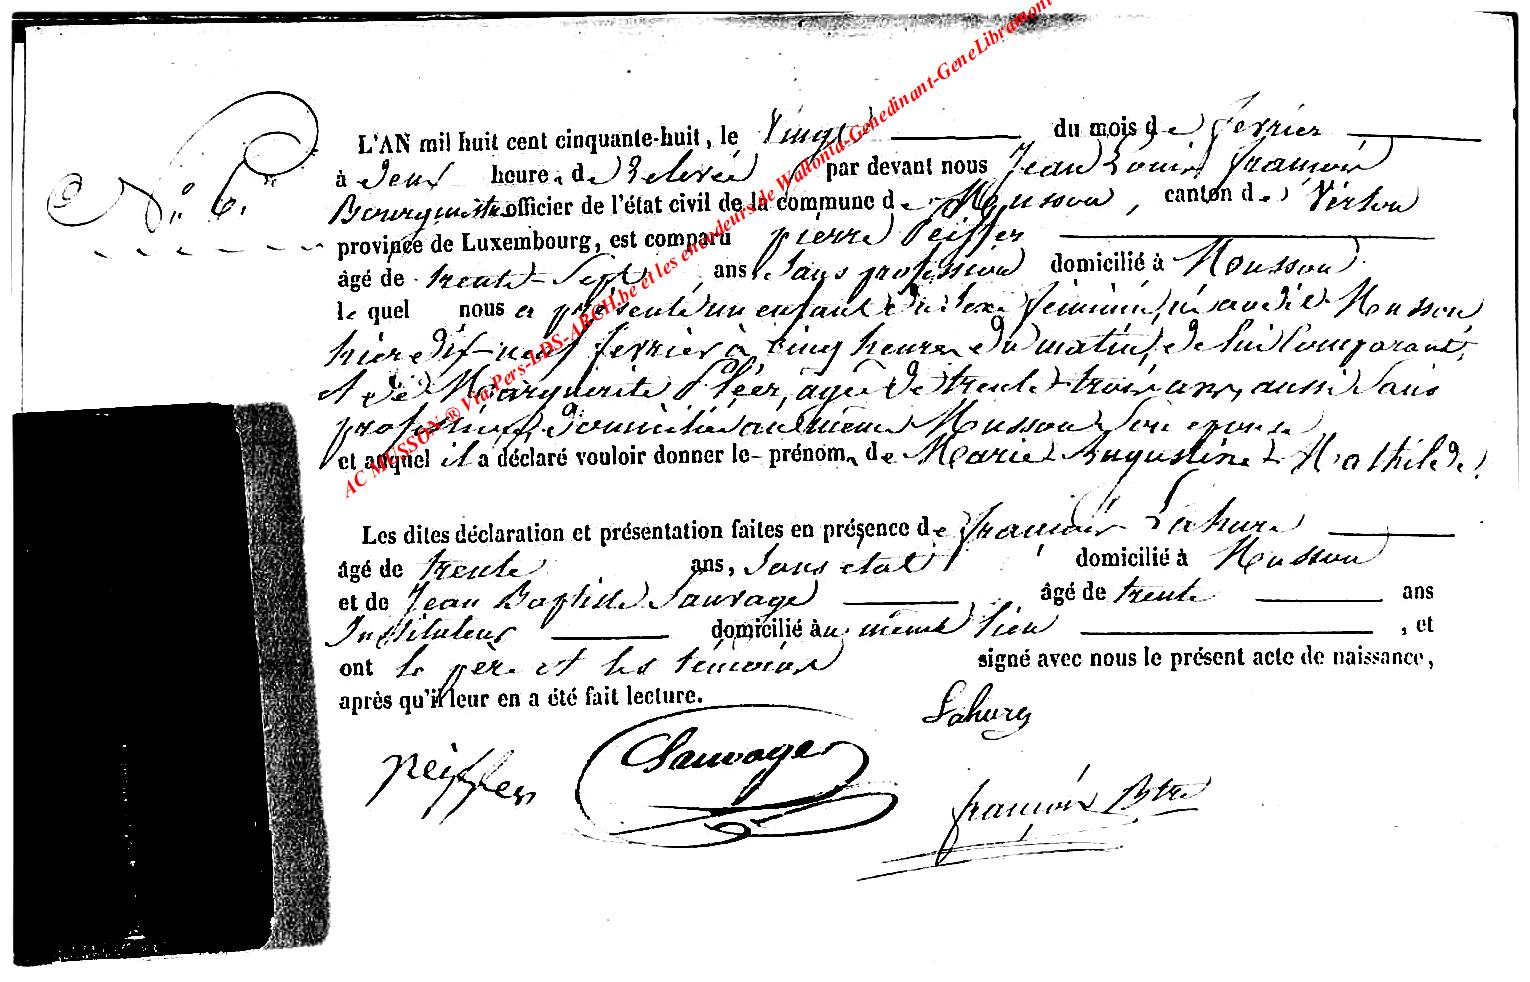 N.° 6.
L'AN mil huit cent cinquante-huit, le Vingt du mois de fevrier
à deux heures de Relevée par devant nous Jean Louis françois
Bourgmestre officier de l'état civil de la commune de Musson, canton de Virton
province de Luxembourg, est comparu pierre Peiffer
âgé de trente-Sept ans, Sans profession domicilié à Musson
le quel nous a présenté un enfant du Sexe féminin, né audit Musson
hier dif-neuf fevrier à cinq heures du matin, de lui Comparant,
et de Marguerite, agée de trente trois ans, aussi Sans
profession, domiciliée au même Musson Son epouse
et auquel il a déclaré vouloir donner les prénoms de Marie Augustine Mathilde.
Les dites déclaration et présentation faites en présence de françois Lahure
âgé de trente ans, Sans etat domicilié à Musson
et de Jean Baptiste Sauvage âgé de trente ans
Instituteur domicilié au même lieu , et
ont le père et les témoins signé avec nous le présent acte de naissance,
après qu'il leur en a été fait lecture.
Lahure
peiffer Sauvage
françois Btre
AC MUSSON ® Via Pers-LDS-ARCH.be et les encodeurs de Wallonia-Genedinant-GeneLibramont